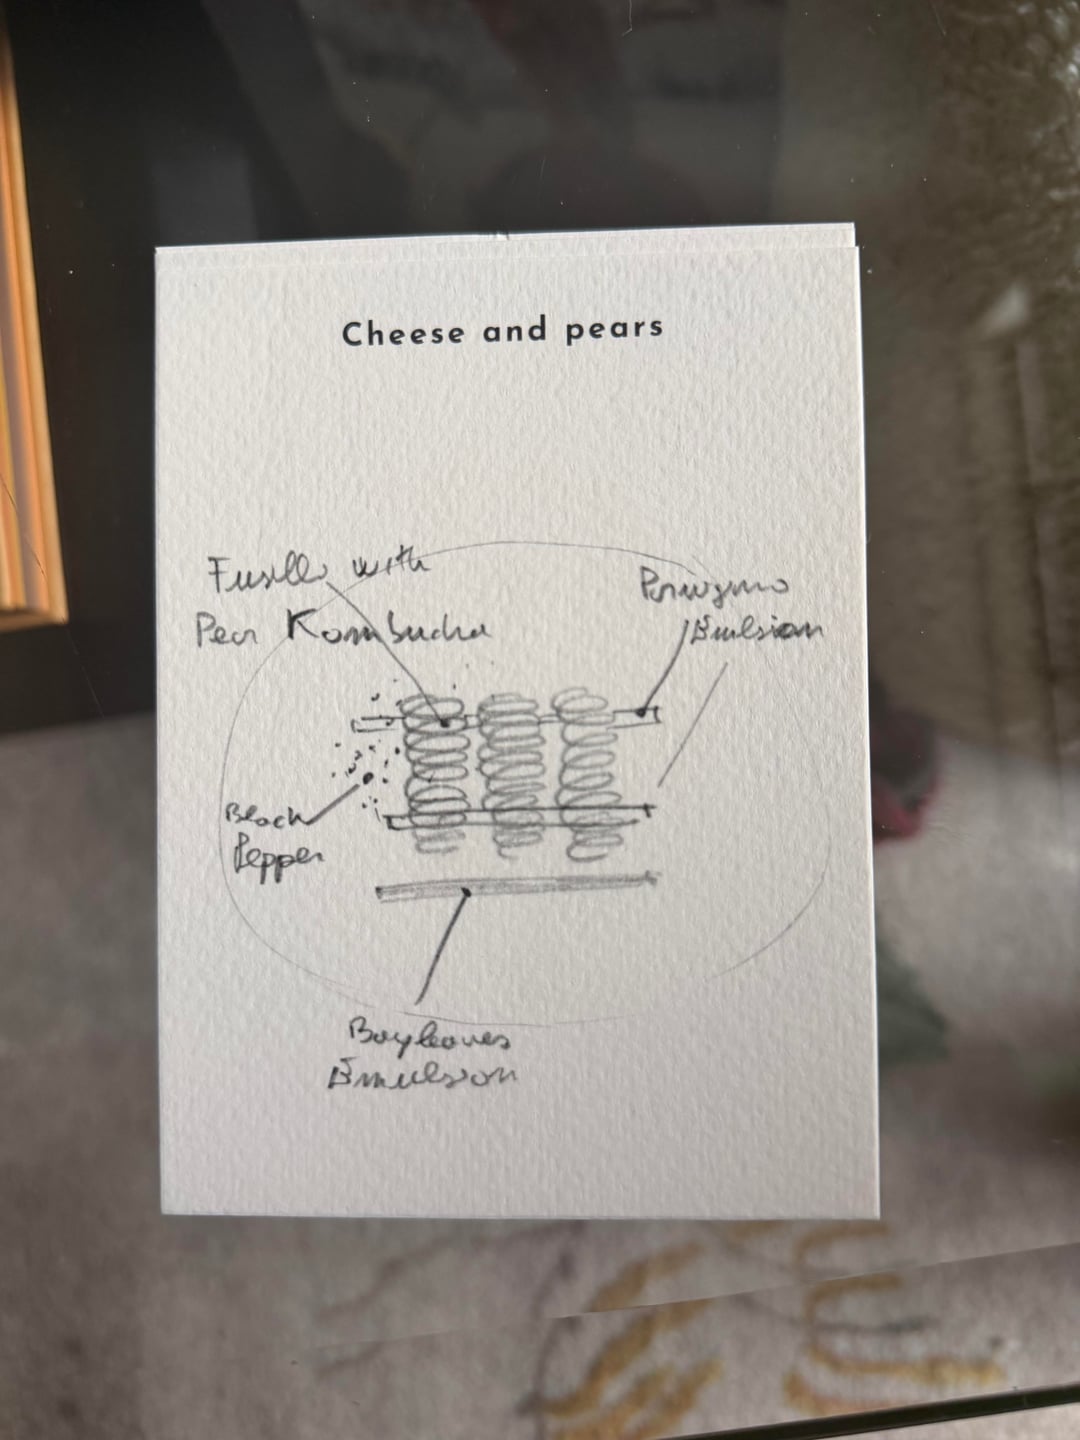 Cheese and pears
Fusillo with
Pear Kombucha
Emulsion
Black
Pepper
Bayleaves
Emulsion